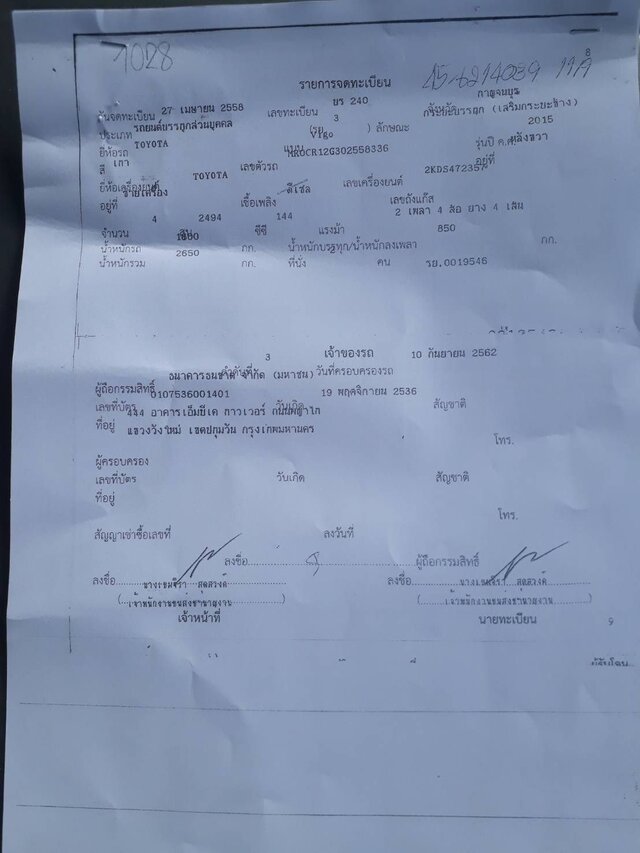 1028
รายการจดทะเบียน
8
วันจดทะเบียน 27 เมษายน 2558 เลขทะเบียน บร 240 กาญจนบุรี
ประเภท รถยนต์บรรทุกส่วนบุคคล (รย. 3 ) ลักษณะ กระบะบรรทุก (เสริมกระบะข้าง)
ยี่ห้อรถ TOYOTA แบบ Vigo รุ่นปี ค.ศ. 2015
สี เทา เลขตัวรถ MR0CR12G302558336 อยู่ที่ หลังขวา
ยี่ห้อเครื่องยนต์ TOYOTA เลขเครื่องยนต์ 2KDS472357
อยู่ที่ ซ้ายเครื่อง เชื้อเพลิง ดีเซล เลขถังแก๊ส
จำนวน 4 สูบ 2494 ซีซี 144 แรงม้า 2 เพลา 4 ล้อ ยาง 4 เส้น
น้ำหนักรถ กก. น้ำหนักบรรทุก/น้ำหนักลงเพลา 850 กก.
น้ำหนักรวม 2650 กก. ที่นั่ง 2 คน รย.0019546
ลำดับที่ 3 เจ้าของรถ วันที่ครอบครองรถ 10 กันยายน 2562
ผู้ถือกรรมสิทธิ์ ธนาคารธนชาต จำกัด (มหาชน)
เลขที่บัตร 0107536001401 วันเกิด 19 พฤศจิกายน 2536 สัญชาติ
ที่อยู่ 444 อาคารเอ็มบีเค ทาวเวอร์ ถนนพญาไท
แขวงวังใหม่ เขตปทุมวัน กรุงเทพมหานคร
โทร.
ผู้ครอบครอง
เลขที่บัตร วันเกิด สัญชาติ
ที่อยู่
โทร.
สัญญาเช่าซื้อเลขที่ ลงวันที่
ลงชื่อ ผู้ถือกรรมสิทธิ์
ลงชื่อ ลงชื่อ
(เจ้าพนักงานขนส่งชำนาญงาน) (เจ้าพนักงานขนส่งชำนาญงาน)
เจ้าหน้าที่ นายทะเบียน
9